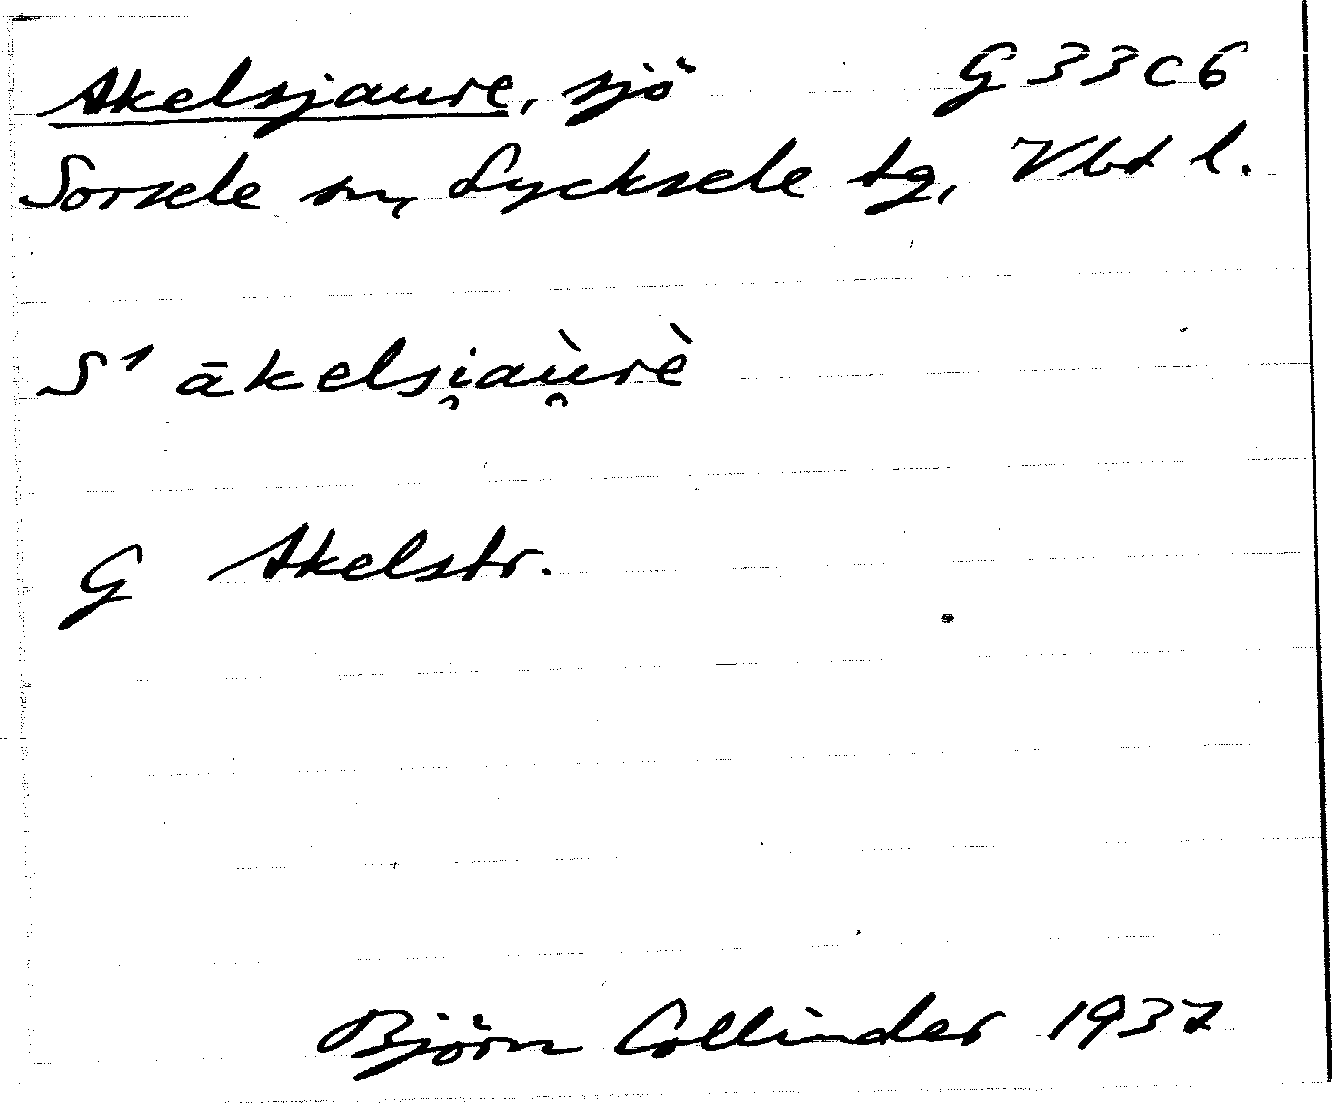 Akelsjaure, sjö G 33 C 6
Sorsele sn, Lycksele tg, Vbt l.
S¹ ākelsi̯aù̯rè
G Akelstr.
Björn Collinder 1937